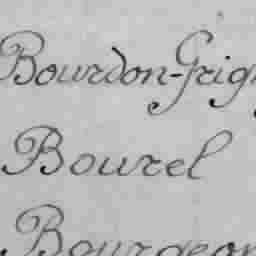 Bourdon-Grign
Bourel
Bourgeon